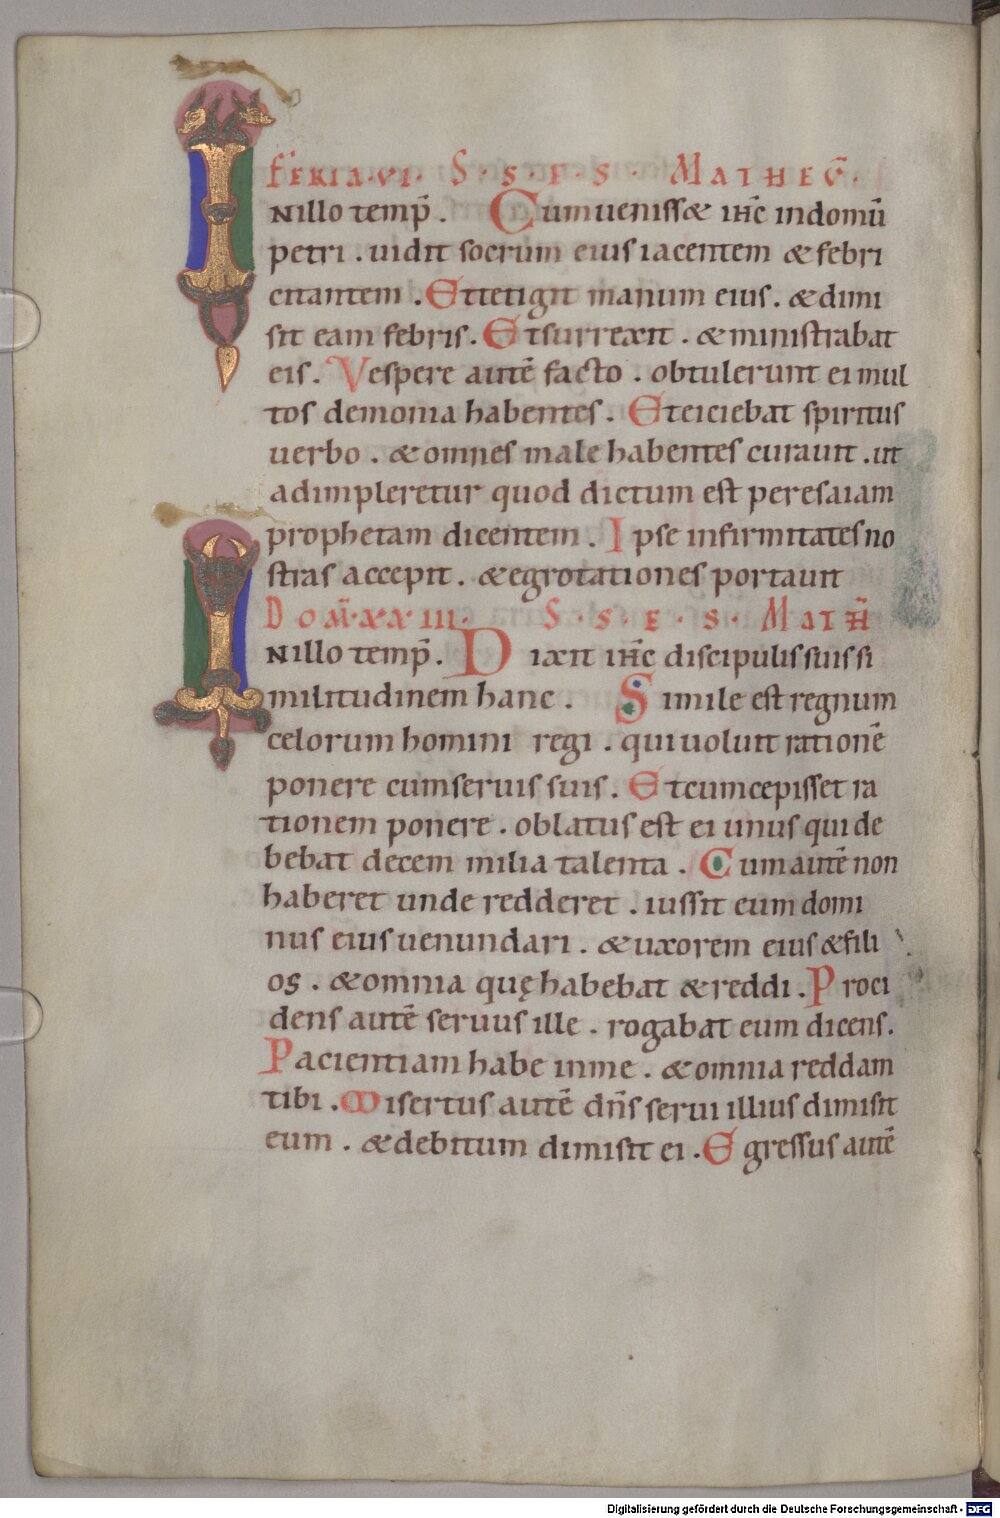 FERIA·VI· S·S·E·S· MATHEŪ·
INillo temp̄. Cum uenisset ih̄c in domū
petri. uidit socrum eius iacentem & febri
citantem. Et tetigit manum eius. & dimi
sit eam febris. Et surrexit. & ministrabat
eis. Vespere autē facto. obtulerunt ei mul
tos demonia habentes. Et eiciebat spiritus
uerbo. & omnes male habentes curauit. ut
adimpleretur quod dictum est per esaiam
prophetam dicentem. Ipse infirmitates no
stras accepit. & egrotationes portauit
DOM̄·XXIII· S·S·E·S· MATH̄
INillo temp̄. Dixit ih̄c discipulis suis si
militudinem hanc. Simile est regnum
celorum homini regi. qui uoluit rationē
ponere cum seruis suis. Et cum cepisset ra
tionem ponere. oblatus est ei unus qui de
bebat decem milia talenta. Cum autē non
haberet unde redderet. iussit eum domi
nus eius uenundari. & uxorem eius & fili
os. & omnia quę habebat & reddi. Proci
dens autē seruus ille. rogabat eum dicens.
Pacientiam habe in me. & omnia reddam
tibi. Misertus autē dn̄s serui illius dimisit
eum. & debitum dimisit ei. Egressus autē
Digitalisierung gefördert durch die Deutsche Forschungsgemeinschaft - DFG